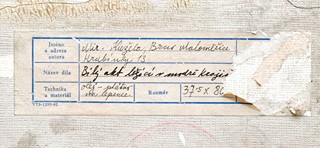 Jméno
a adresa
autora
akr. Kužela, Brno Maloměřice
Hrubínky 13
Název díla
Bílý akt ležící v modré kraji
Technika
a materiál
olej - plátno
na lepence
Rozměr
37,5 x 86